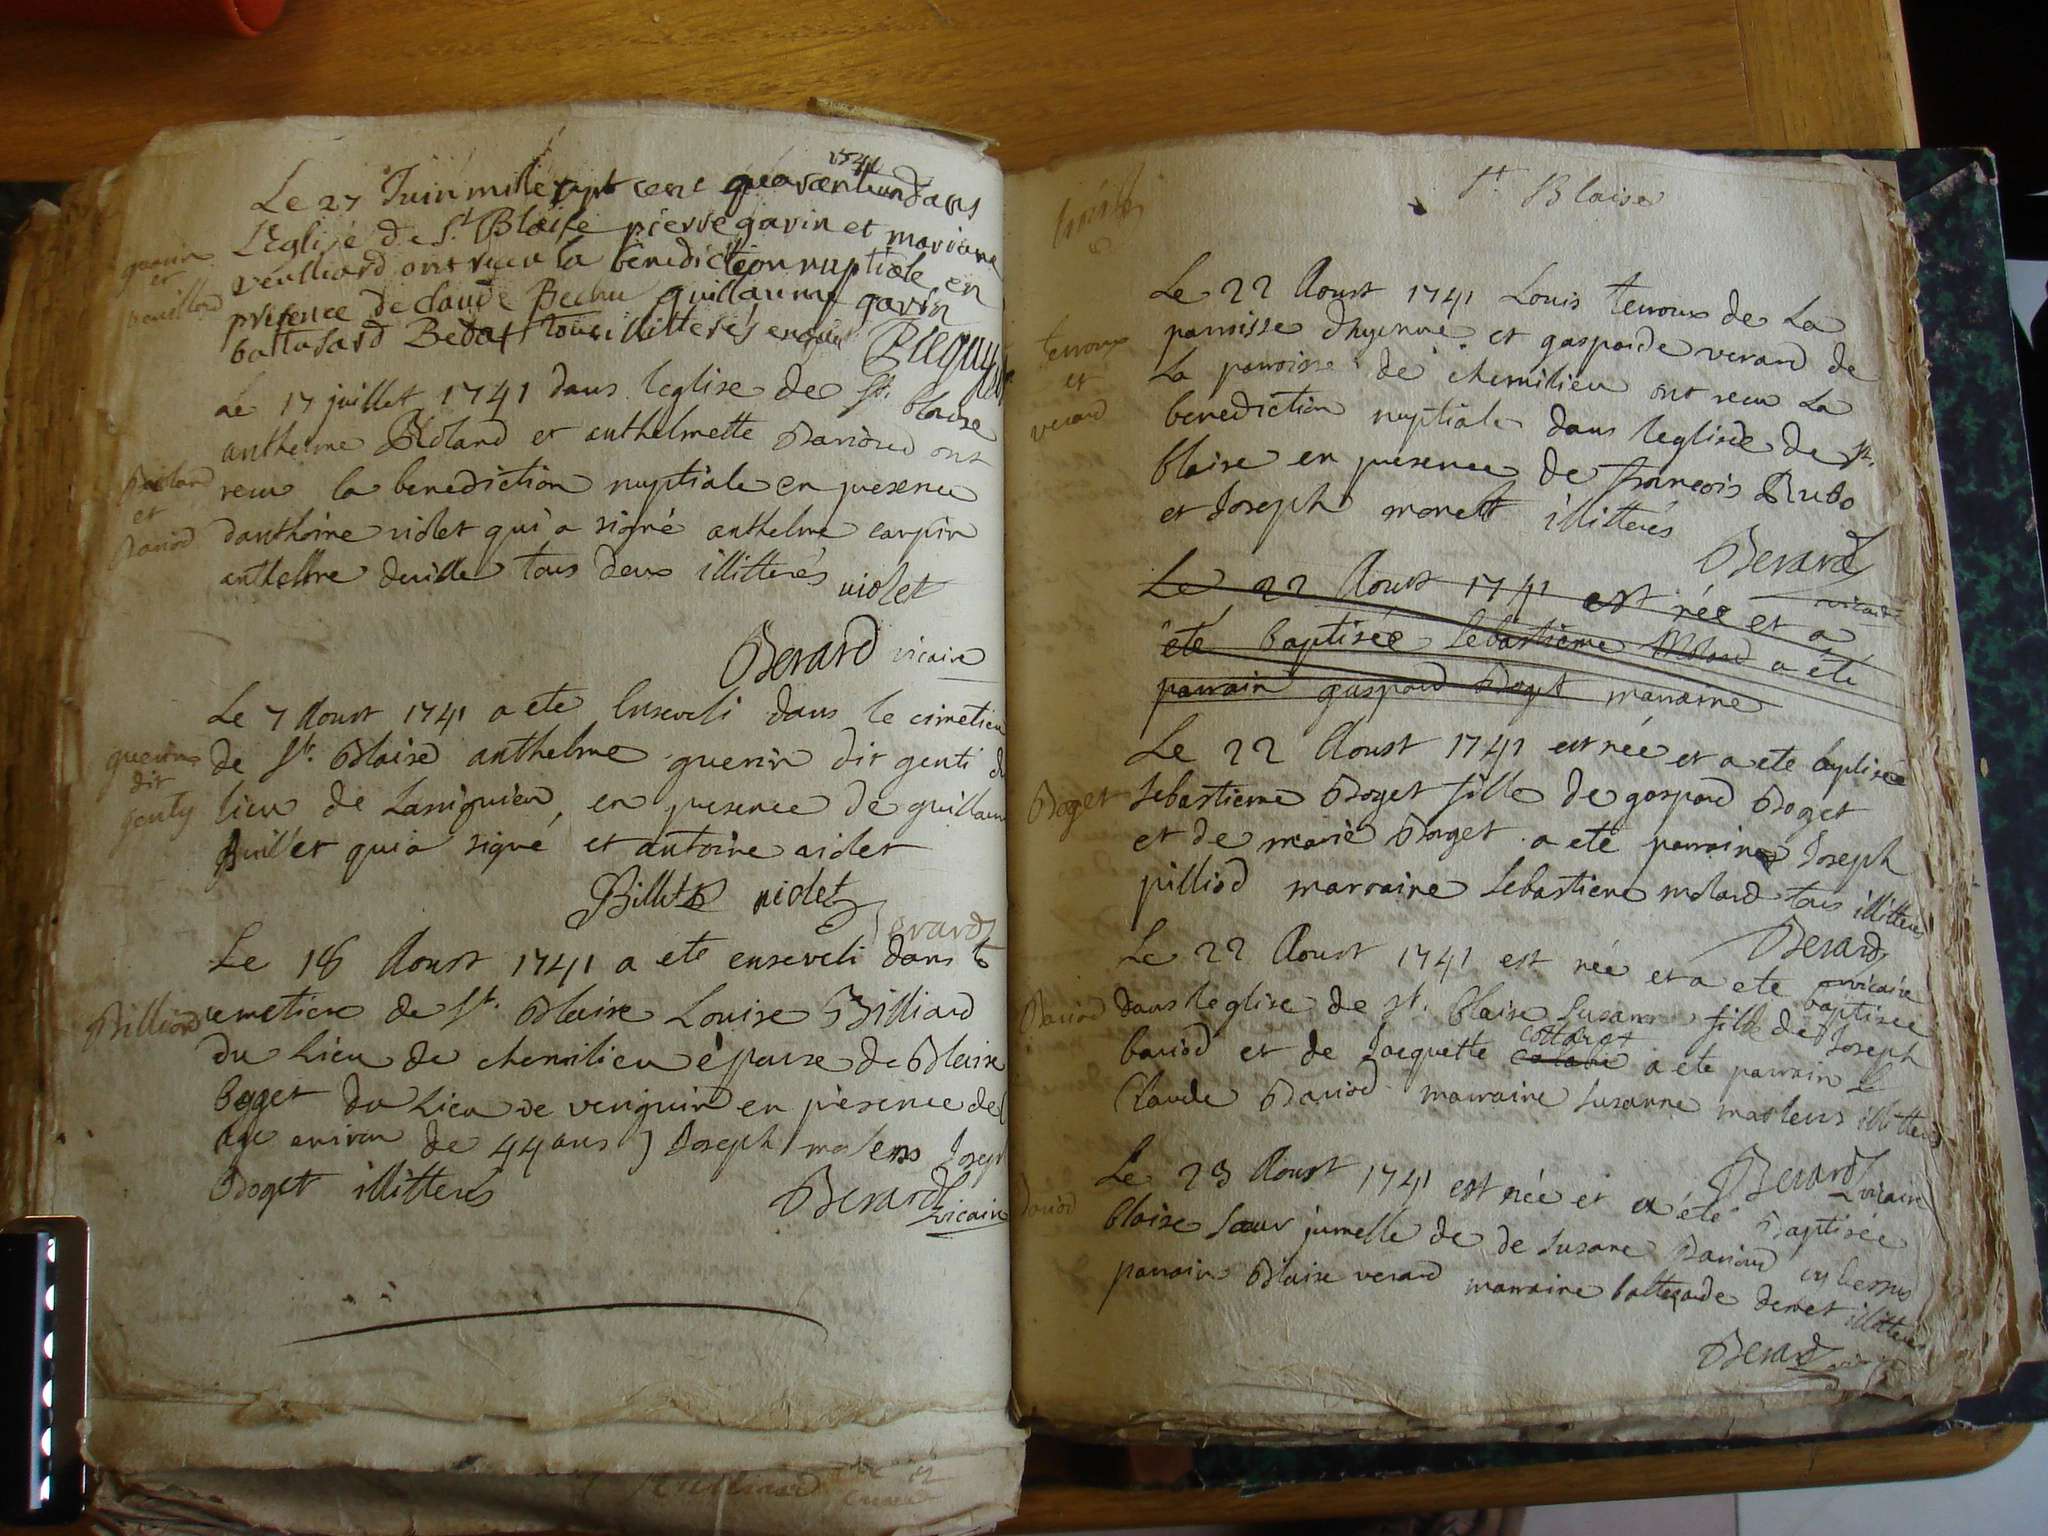 1741
Le 27 Juin mille sept cent quarantun dans
L'Eglise de St Blaise pierre gavin et mariane
veulliard ont recu la benediction nuptiale en
presence de claude Bechu guillaume gavin
baltasard Bedat tous illitterés enquis
gavin
et
veuillard
Le 17 juillet 1741 dans leglise de St. blaise
anthelme Bolard et anthelmette Bariod ont
recu la benediction nuptiale en presence
danthoine violet qui a signé anthelme carpin
anthelme deville tous deux illitterés violet
et
Bariod
Berard vicaire
Le 7 Aoust 1741 a ete Enseveli dans le cimetiere
de St. Blaise anthelme guerin dit genti du
lieu de Lassignieu, en presence de guillaume
Billet qui a signé et antoine violet
guerin
dit
genty
Billet violet
Berard
Le 18 Aoust 1741 a ete enseveli dans le
cemetiere de St. Blaise Louise Billiard
du Lieu de chemilieu épouse de Blaise
boget du Lieu de venguin en presence de
age environ de 44 ans Joseph molens Joseph
Boget illitterés
Billiard
Berard vicaire
St. Blaise
Le 22 Aoust 1741 Louis terroux de La
parroisse dhyenne et gasparde verard de
La parroisse de chemilieu ont recu La
benediction nuptiale dans leglise de St.
blaise en presence de francois Rubo
et Joseph morett illitterés
terroux
et
verard
Berard
vicaire
Le 22 Aoust 1741 est née et a
été baptisée Sebastienne Molard a été
parrain gaspard Boget marraine
Le 22 Aoust 1741 est née et a ete baptisée
Boget Sebastienne Boget fille de gaspard Boget
et de marie Borget a ete parrain Joseph
pilliod marraine Sebastiene molard tous illitterés
Berard
vicaire
Le 22 Aoust 1741 est née et a ete baptisée
Bariod dans leglise de St. blaise Susanne fille de Joseph
bariod et de Jacquette collaret a ete parrain
Claude Bariod marraine Susanne molens illitterés
Berard vicaire
Le 23 Aoust 1741 est née et a été Baptisée
Bariod blaise Sœur jumelle de de Susane Bariod cy dessus
parrain Blaise verard marraine baltezarde demet illitterés
Berard